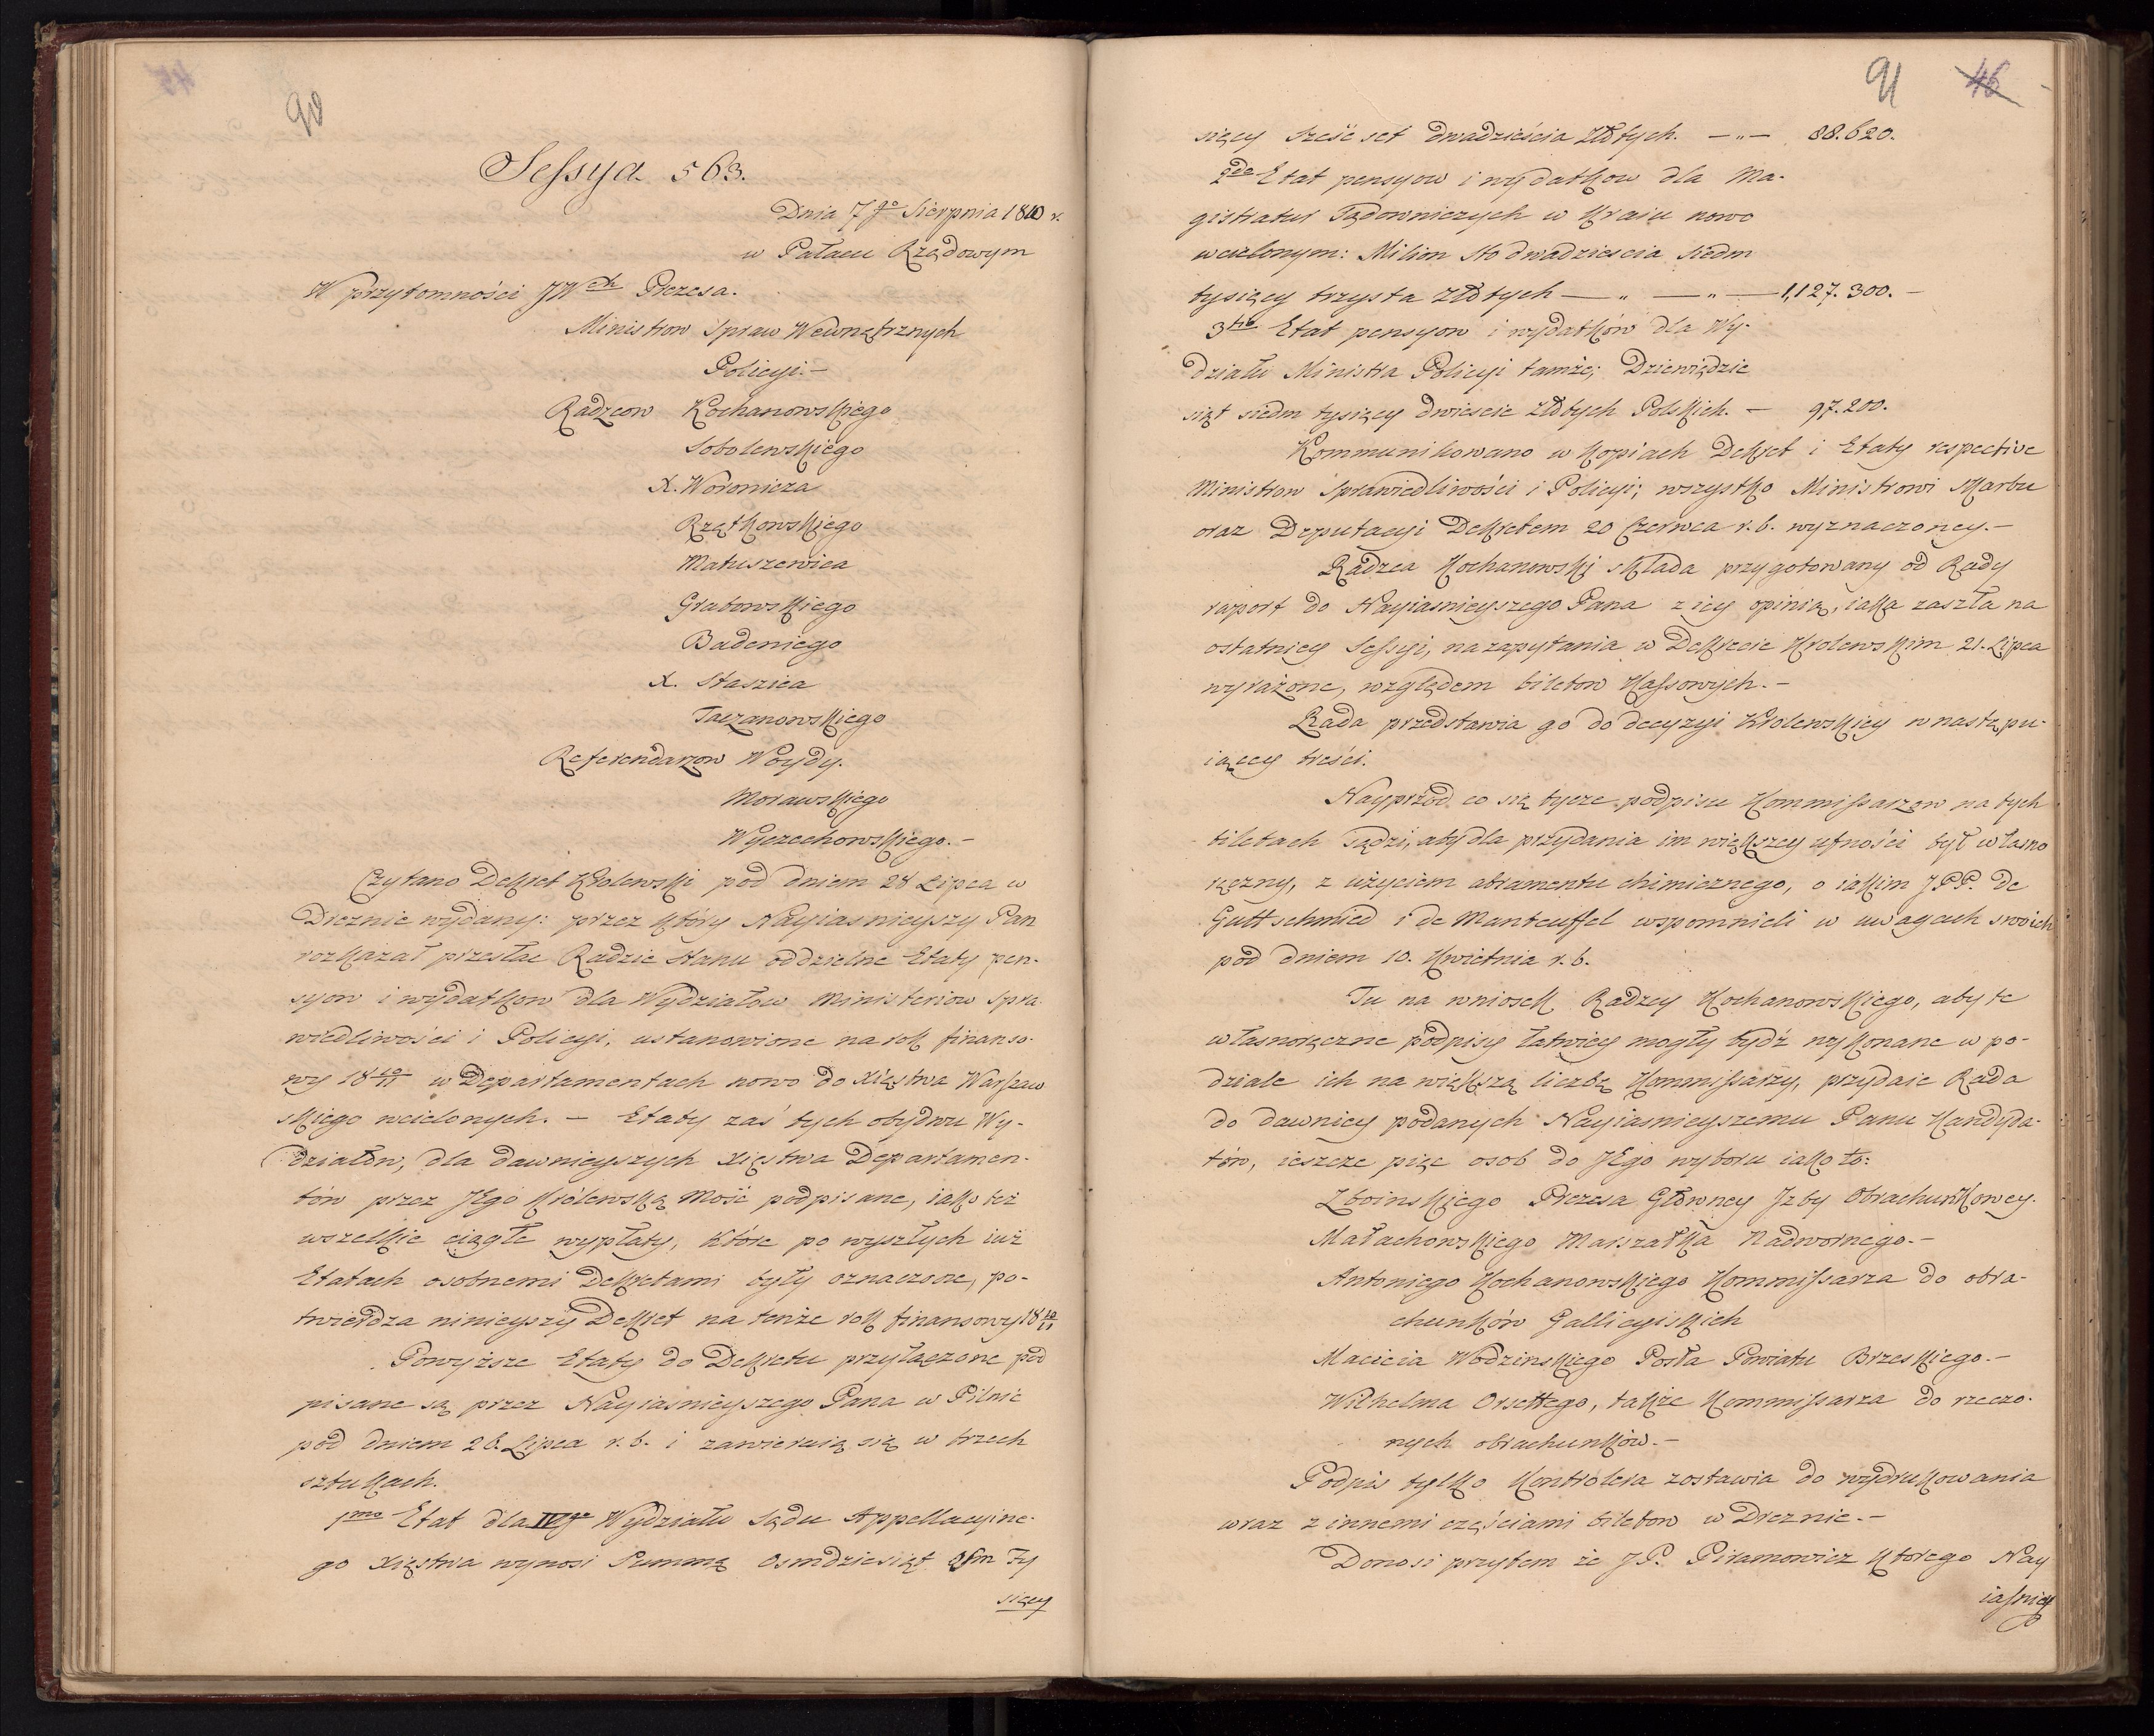 90
Sessya 563.
Dnia 7go Sierpnia 1810 r.
w Pałacu Rządowym
W przytomności JWch Prezesa.
Ministrow Spraw Wewnętrznych
Policyi.—
Radzcow Kochanowskiego
Sobolewskiego
X. Woronicza
Rzętkowskiego
Matuszewica
Grabowskiego
Badeniego
X. Staszica
Taczanowskiego
Referendarzow Woydy.
Morawskiego
Wyczechowskiego.—
Czytano Dekret Krolewski pod dniem 28 Lipca w
Dreznie wydany: przez który Nayiasnieyszy Pan
rozkazał przesłac Radzie Stanu oddzielne Etaty pen-
syow i wydatkow dla Wydziałow Ministeriow Spra-
wiedliwości i Policyi, ustanowione na rok finanso-
wy 18 10/11 w Departamentach nowo do Xięstwa Warszaw
skiego wcielonych. — Etaty zaś tych obydwu Wy-
działów, dla dawnieyszych Xięstwa Departamen-
tów przez JEgo Królewską Mość podpisane, iako też
wszelkie ciągłe wypłaty, które po wyszłych iuż
Etatach osobnemi Dekretami były oznaczone, po-
twierdza ninieyszy Dekret na tenże rok finansowy 18 10/11
Powyższe Etaty do Dekretu przyłączone pod
pisane są przez Nayiasnieyszego Pana w Pilnic
pod dniem 26. Lipca r. b. i zawieraią się w trzech
sztukach.
1mo Etat dla IIgo Wydziału Sądu Appellacyine-
go Xięstwa wynosi Summę Osmdziesiąt Ośm Ty
sięcy
91 46
sięcy Sześćset dwadzieścia Złłtych. —"— 88.620.
2do Etat pensyow i wydatkow dla Ma-
gistratur Sądowniczych w Kraiu nowo
wcielonym: Milion Sto dwadziescia Siedm
tysięcy trzysta Złłtych — " — " — 1,127.300.—
3tio Etat pensyow i wydatków dla Wy-
działu Ministra Policyi tamże; Dziewiędzie
siąt siedm tysięcy dwiescie Złłtych Polskich. — 97.200.
Kommunikowano w kopiach Dekret i Etaty respective
Ministrow Sprawiedliwości i Policyi; wszystko Ministrowi Skarbu
oraz Deputacyi Dekretem 20 Czerwca r. b. wyznaczoney.—
Radzca Kochanowski składa przygotowany od Rady
raport do Nayiasnieyszego Pana z iey opinią, iaka zaszła na
ostatniey Sessyi, na zapytania w Dekrecie Krolewskim 21. Lipca
wyrażone, względem biletow Kassowych.—
Rada przedstawia go do decyzyi Krolewskiey w nastę̨pu-
iącey treści.
Nayprzód co się tycze podpisu Kommissarzow na tych
biletach sądzi, aby dla przydania im większey ufności był własno
ręczny, z użyciem atramentu chimicznego, o iakim JPP. de
Guttschmied i de Manteuffel wspomnieli w uwagach swoich
pod dniem 10. Kwietnia r. b.
Tu na wniosek Radzcy Kochanowskiego, aby te
własnoręczne podpisy łatwiey mogły bydź wykonane w po-
dziale ich na większą liczbę Kommissarzy, przydaie Rada
do dawniey podanych Nayiasnieyszemu Panu Kandyda-
tów, ieszcze pięc osob do JEgo wyboru iako to:
Zboinskiego Prezesa Główney Jzby Obrachunkowey.
Małachowskiego Marszałka Nadwornego.—
Antoniego Kochanowskiego Kommissarza do obra-
chunków Gallicyiskich
Macieia Wodzinskiego Posła Powiatu Brzeskiego.—
Wilhelma Orsettego, także Kommissarza do rzeczo-
nych obrachunków.—
Podpis tylko Kontrolera zostawia do wydrukowania
wraz z innemi częściami biletow w Dreznie.—
Donosi przytem że JP. Piramowicz ktorego Nay
iaśniey